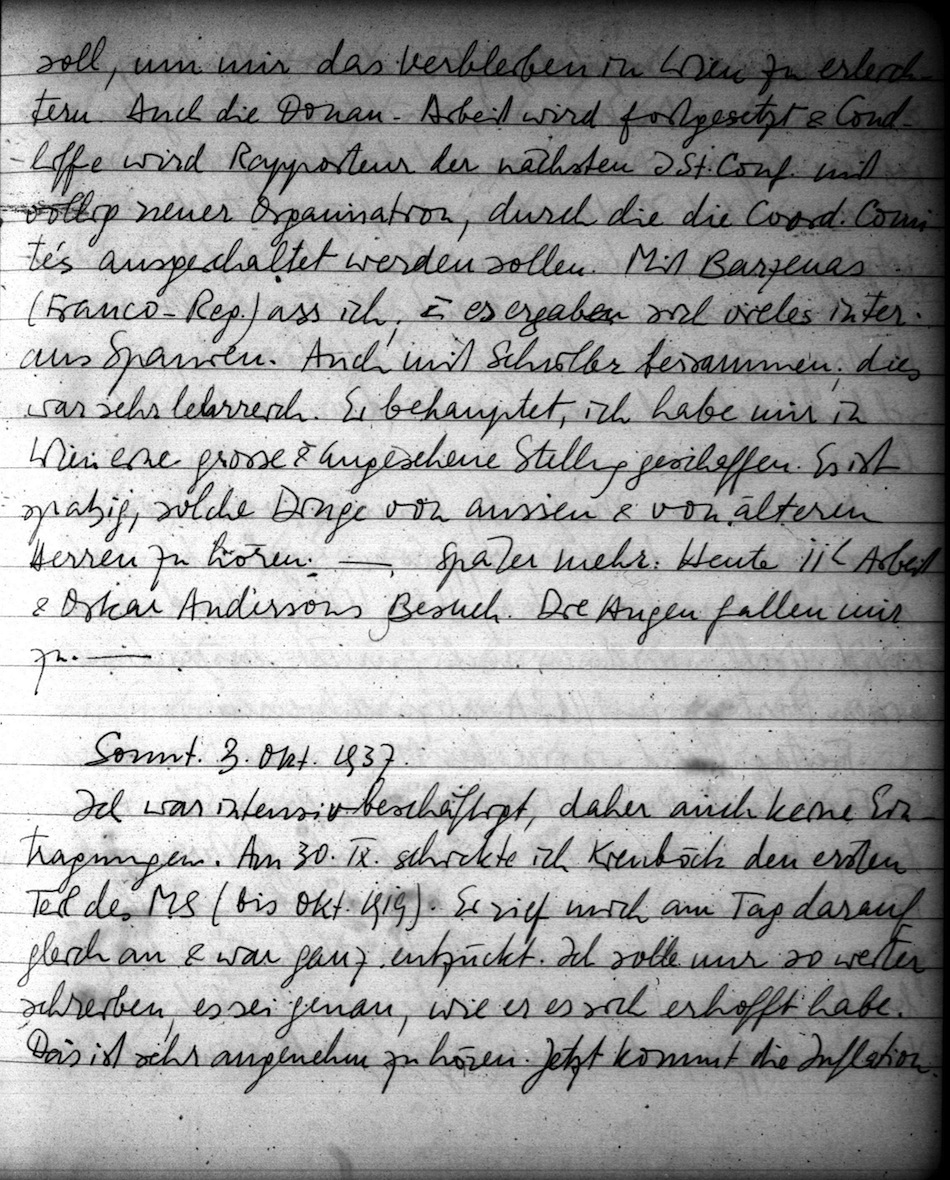 soll, um mir das Verbleiben in Wien zu erleich-
tern. Auch die Donau-Arbeit wird fortgesetzt & Cond-
liffe wird Rapporteur der nächsten I St. Conf. mit
völlig neuer Organisation, durch die die Coord. Comi
tés ausgeschaltet werden sollen. Mit Barzenas
(Franco-Rep.) ass ich, & es ergaben sich vieles inter.
aus Spanien. Auch mit Schüller beisammen; dies
war sehr lehrreich. Er behauptet, ich habe mir in
Wien eine grosse & angesehene Stellg geschaffen. Es ist
spassig, solche Dinge von aussen & von älteren
Herren zu hören. — Später mehr. Heute Arbeit
& Oskar Anderssons Besuch. Die Augen fallen mir
zu. —
Sonnt. 3. Okt. 1937.
Ich war intensiv beschäftigt, daher auch keine Ein-
tragungen. Am 30. IX. schickte ich Kienböck den ersten
Teil des MS (bis Okt. 1919). Er rief mich am Tag darauf
gleich an & war ganz entzückt. Ich solle nur so weiter
schreiben, es sei genau, wie er es sich erhofft habe.
Das ist sehr angenehm zu hören. Jetzt kommt die Inflation.